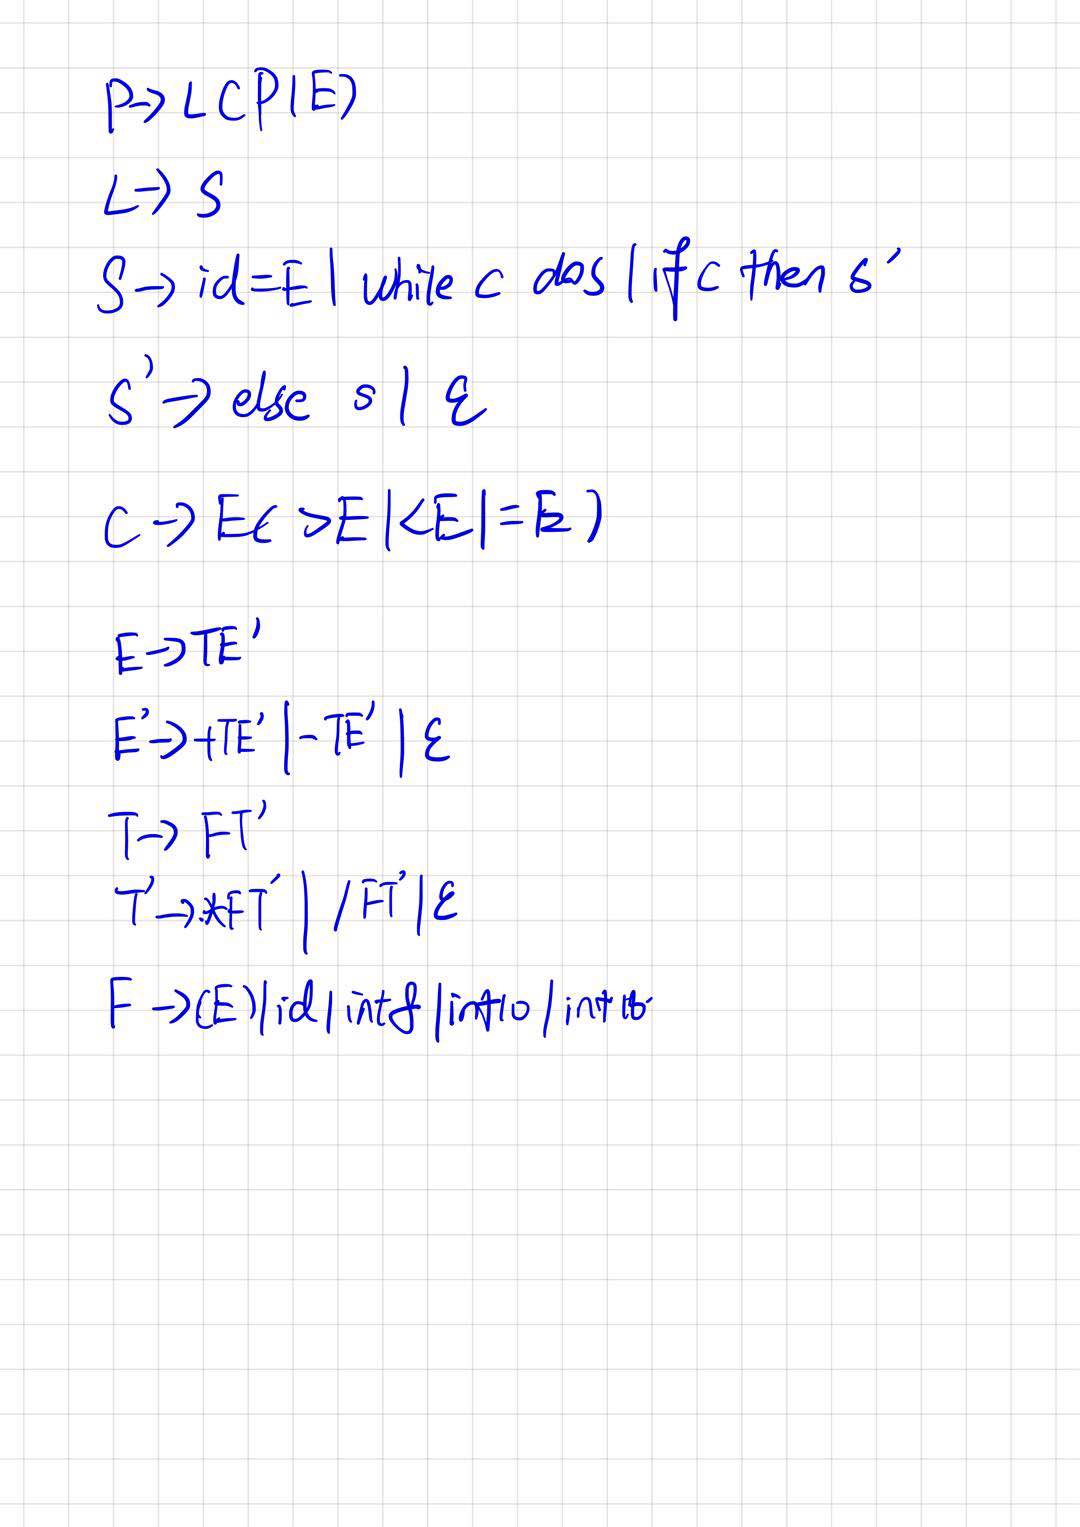 P→LCP|E)
L→S
S→id=E|while c dos|if c then s'
S'→else s|ε
C→E(>E|<E|=E)
E→TE'
E'→+TE'|-TE'|ε
T→FT'
T'→*FT'|/FT'|ε
F→(E)|id|int8|int10|int16